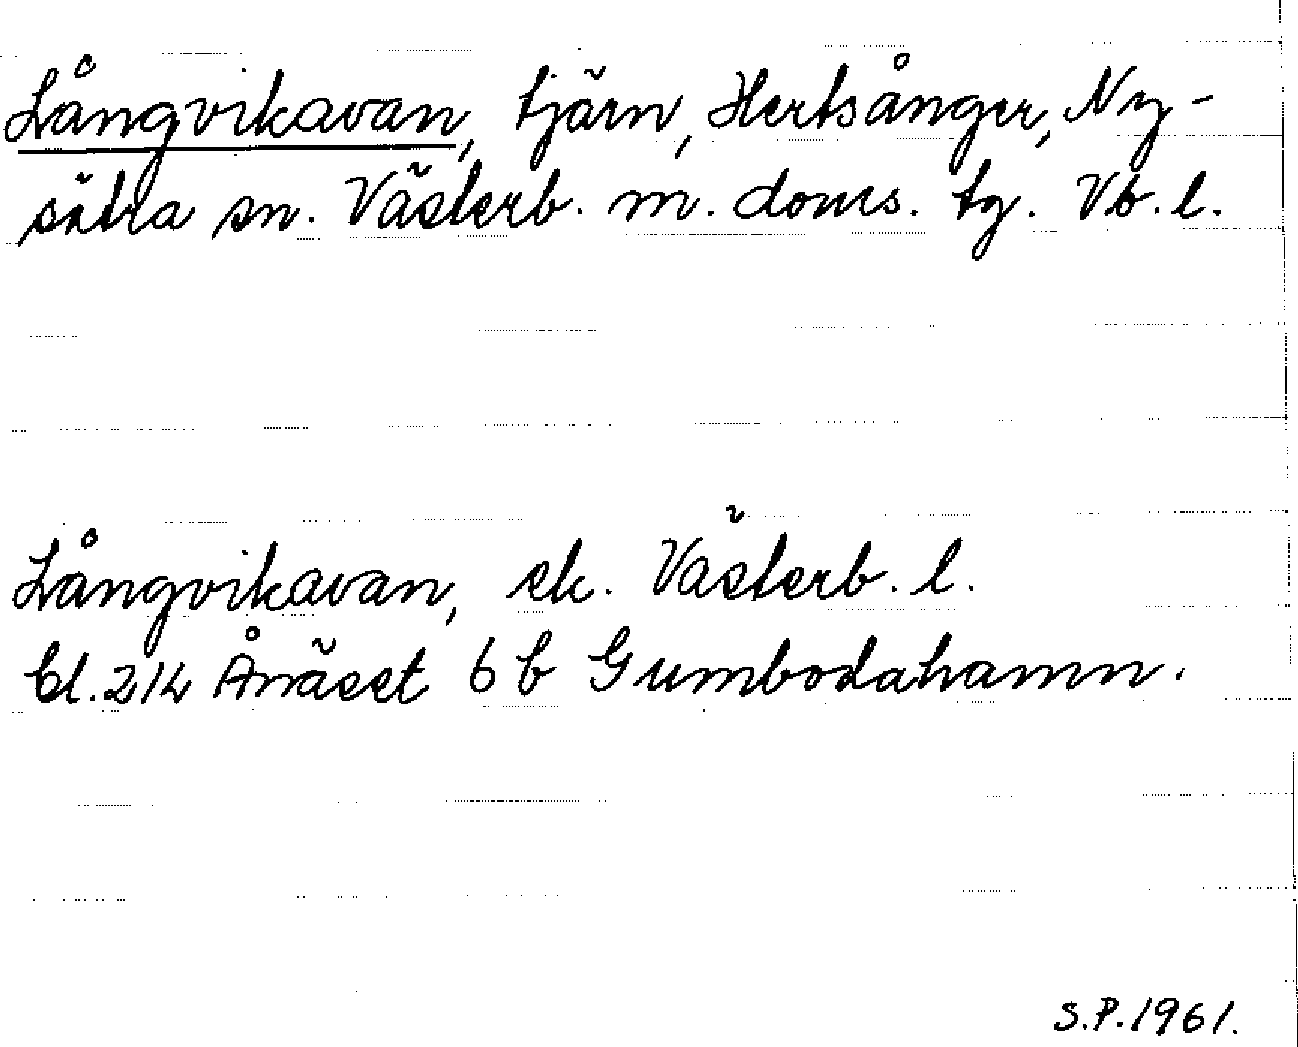 Långvikavan, tjärn, Hertsånger, Ny-
sätra sn. Västerb. m. doms. tg. Vb. l.
Långvikavan, ek. Västerb. l.
bl. 214 Ånäset 6 b Gumbodahamn.
S.P. 1961.